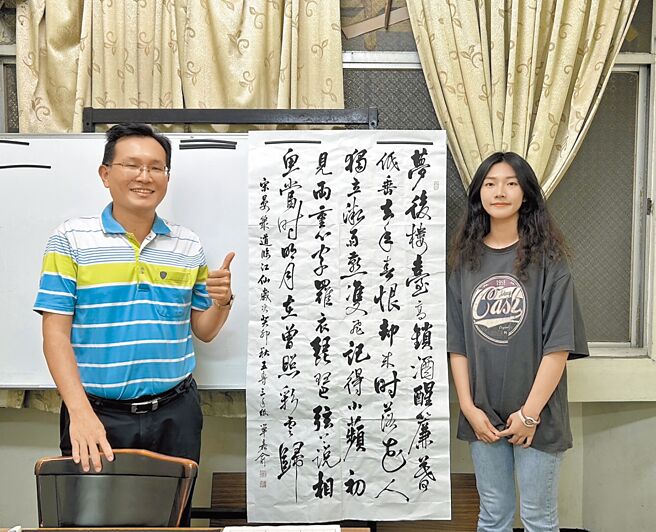 夢後樓臺高鎖酒醒簾幕
低垂去年春恨却來時落花人
獨立微雨燕雙飛記得小蘋初
見兩重心字羅衣琵琶弦上說相
思當時明月在曾照彩雲歸
宋晏幾道臨江仙歲次癸卯秋五專三年級
East